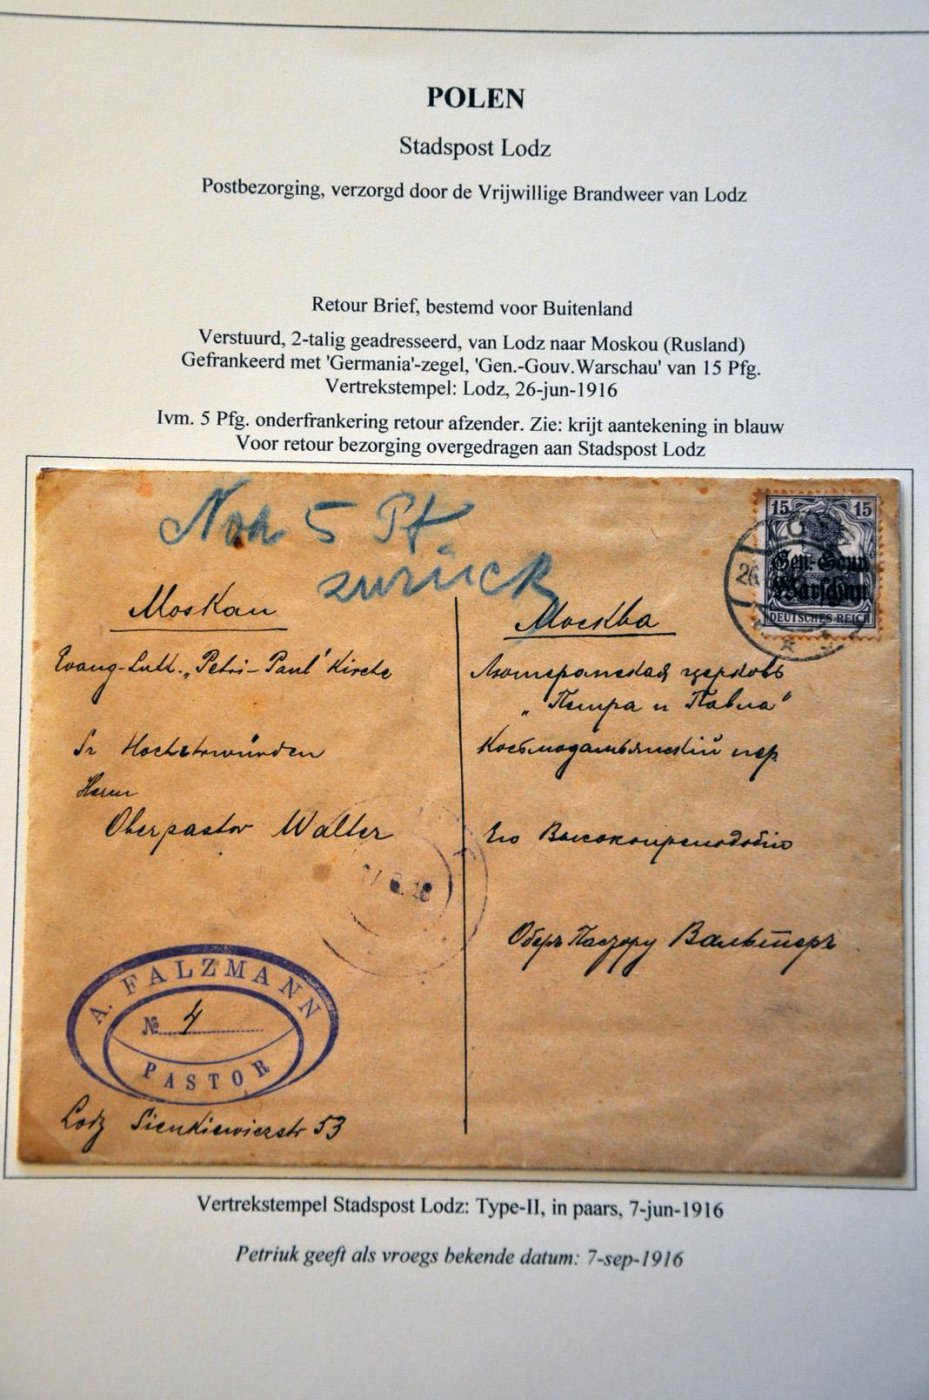 POLEN
Stadspost Lodz
Postbezorging, verzorgd door de Vrijwillige Brandweer van Lodz
Retour Brief, bestemd voor Buitenland
Verstuurd, 2-talig geadresseerd, van Lodz naar Moskou (Rusland)
Gefrankeerd met 'Germania'-zegel, 'Gen.-Gouv.Warschau' van 15 Pfg.
Vertrekstempel: Lodz, 26-jun-1916
Ivm. 5 Pfg. onderfrankering retour afzender. Zie: krijt aantekening in blauw
Voor retour bezorging overgedragen aan Stadspost Lodz
Noch 5 Pf
zurück
15 15
Gen.-Gouv.
Warschau.
DEUTSCHES REICH
26
Moskau
Evang-Luth. „Petri-Paul" Kirche
Sr Hochehrwürden
Herrn
Oberpastor Walter
Москва
Лютеранская церковь
„Петра и Павла"
Космодамьянскій пер
Его Высокопреподобію
Оберъ Пастору Вальтеръ
A. FALZMANN
№ 4
PASTOR
Lodz Sienkiewiczstr 53
Vertrekstempel Stadspost Lodz: Type-II, in paars, 7-jun-1916
Petriuk geeft als vroegs bekende datum: 7-sep-1916